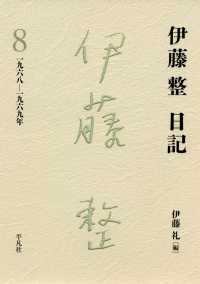 伊藤 整 日記
伊藤 礼[編]
平凡社
8
一九六八—一九六九年
伊藤整